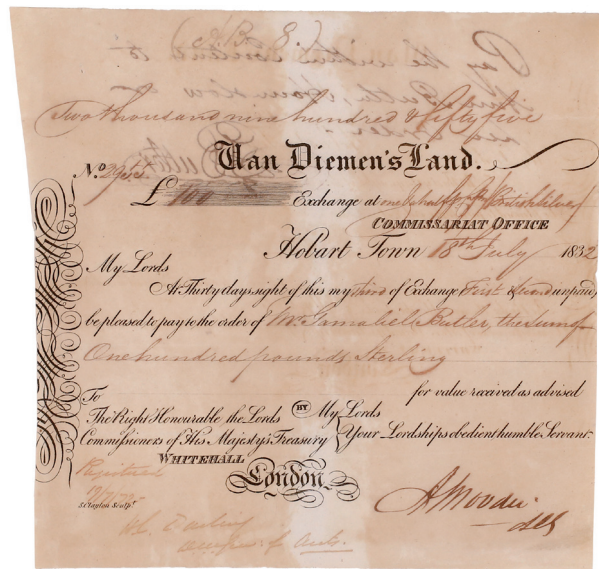 Two thousand nine hundred & fifty five
Van Diemen's Land.
No. 2955
£ 100 Exchange at one & half p British Silver
COMMISSARIAT OFFICE
Hobart Town 18th July 1832
My Lords
At Thirty days sight of this my Third of Exchange First & Second unpaid,
be pleased to pay to the order of Mr. Gamaliel Butler, the Sum of
One hundred pounds Sterling
for value received as advised
To
The Right Honourable the Lords BY My Lords
Commissioners of His Majesty's Treasury Your Lordships obedient humble Servant.
WHITEHALL
London.
Registered
S. Clayton Sculpt.
A Moodie